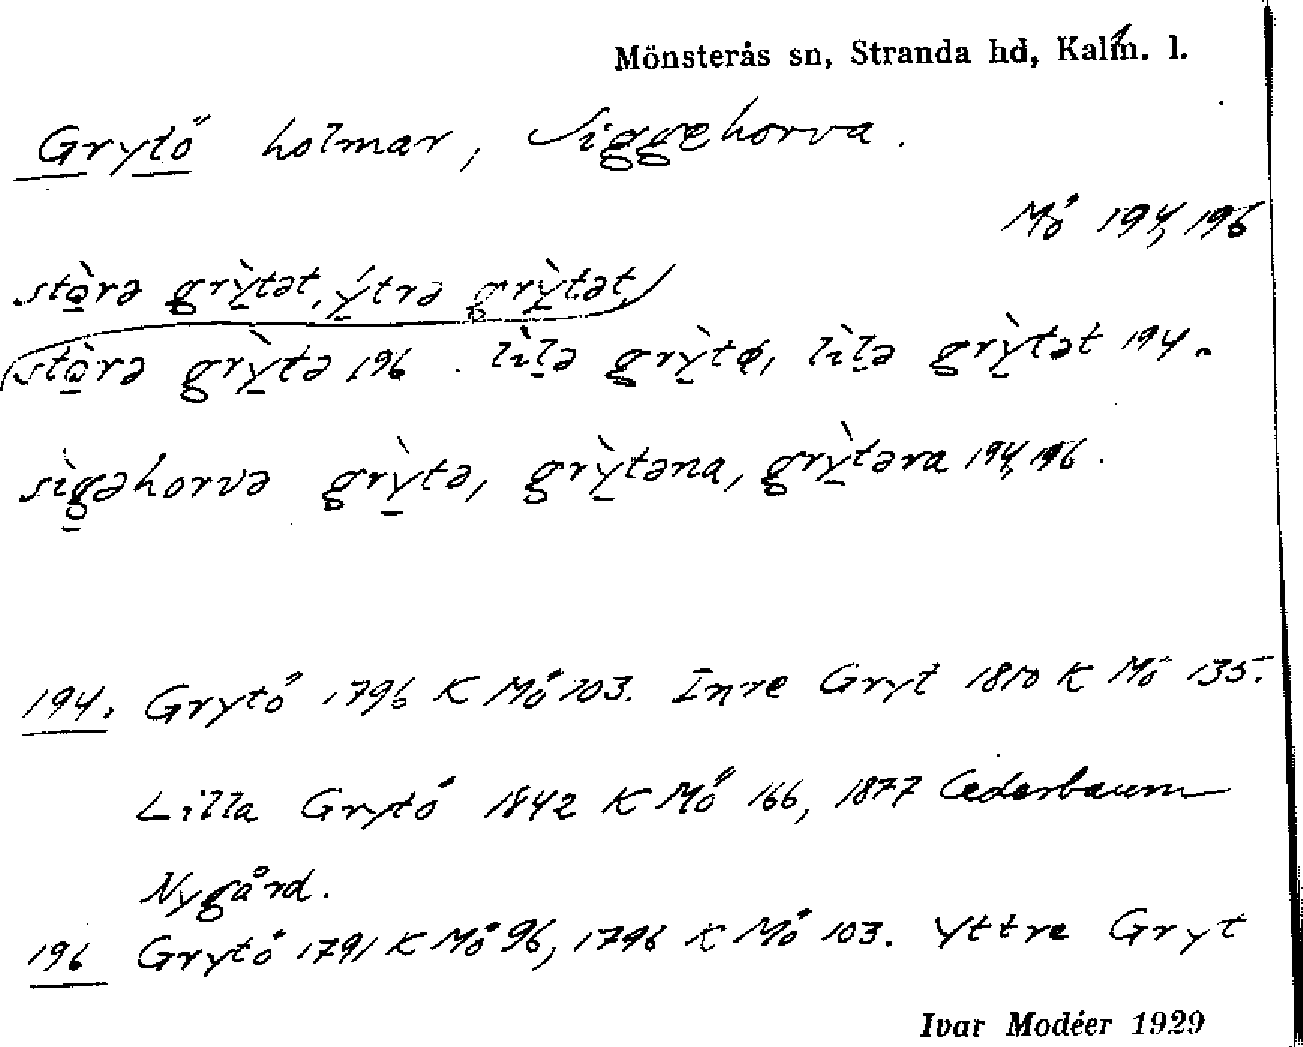 Mönsterås sn, Stranda hd, Kalm. l.
Grytö holmar, Siggehorva.
Mö 194, 196
stòrə grỳtət, ýtrə grỳtət,
stòrə grỳtə 196. lìlə grỳtə, lìlə grỳtət 194.
sìgəhorvə grỳtə, grỳtəna, grỳtəra 194, 196.
194. Grytö 1796 K Mö 103. Inre Gryt 1810 K Mö 135.
Lilla Grytö 1842 K Mö 166, 1877 Cederbaum
Nygård.
196 Grytö 1791 K Mö 96, 1796 K Mö 103. Yttre Gryt
Ivar Modéer 1929